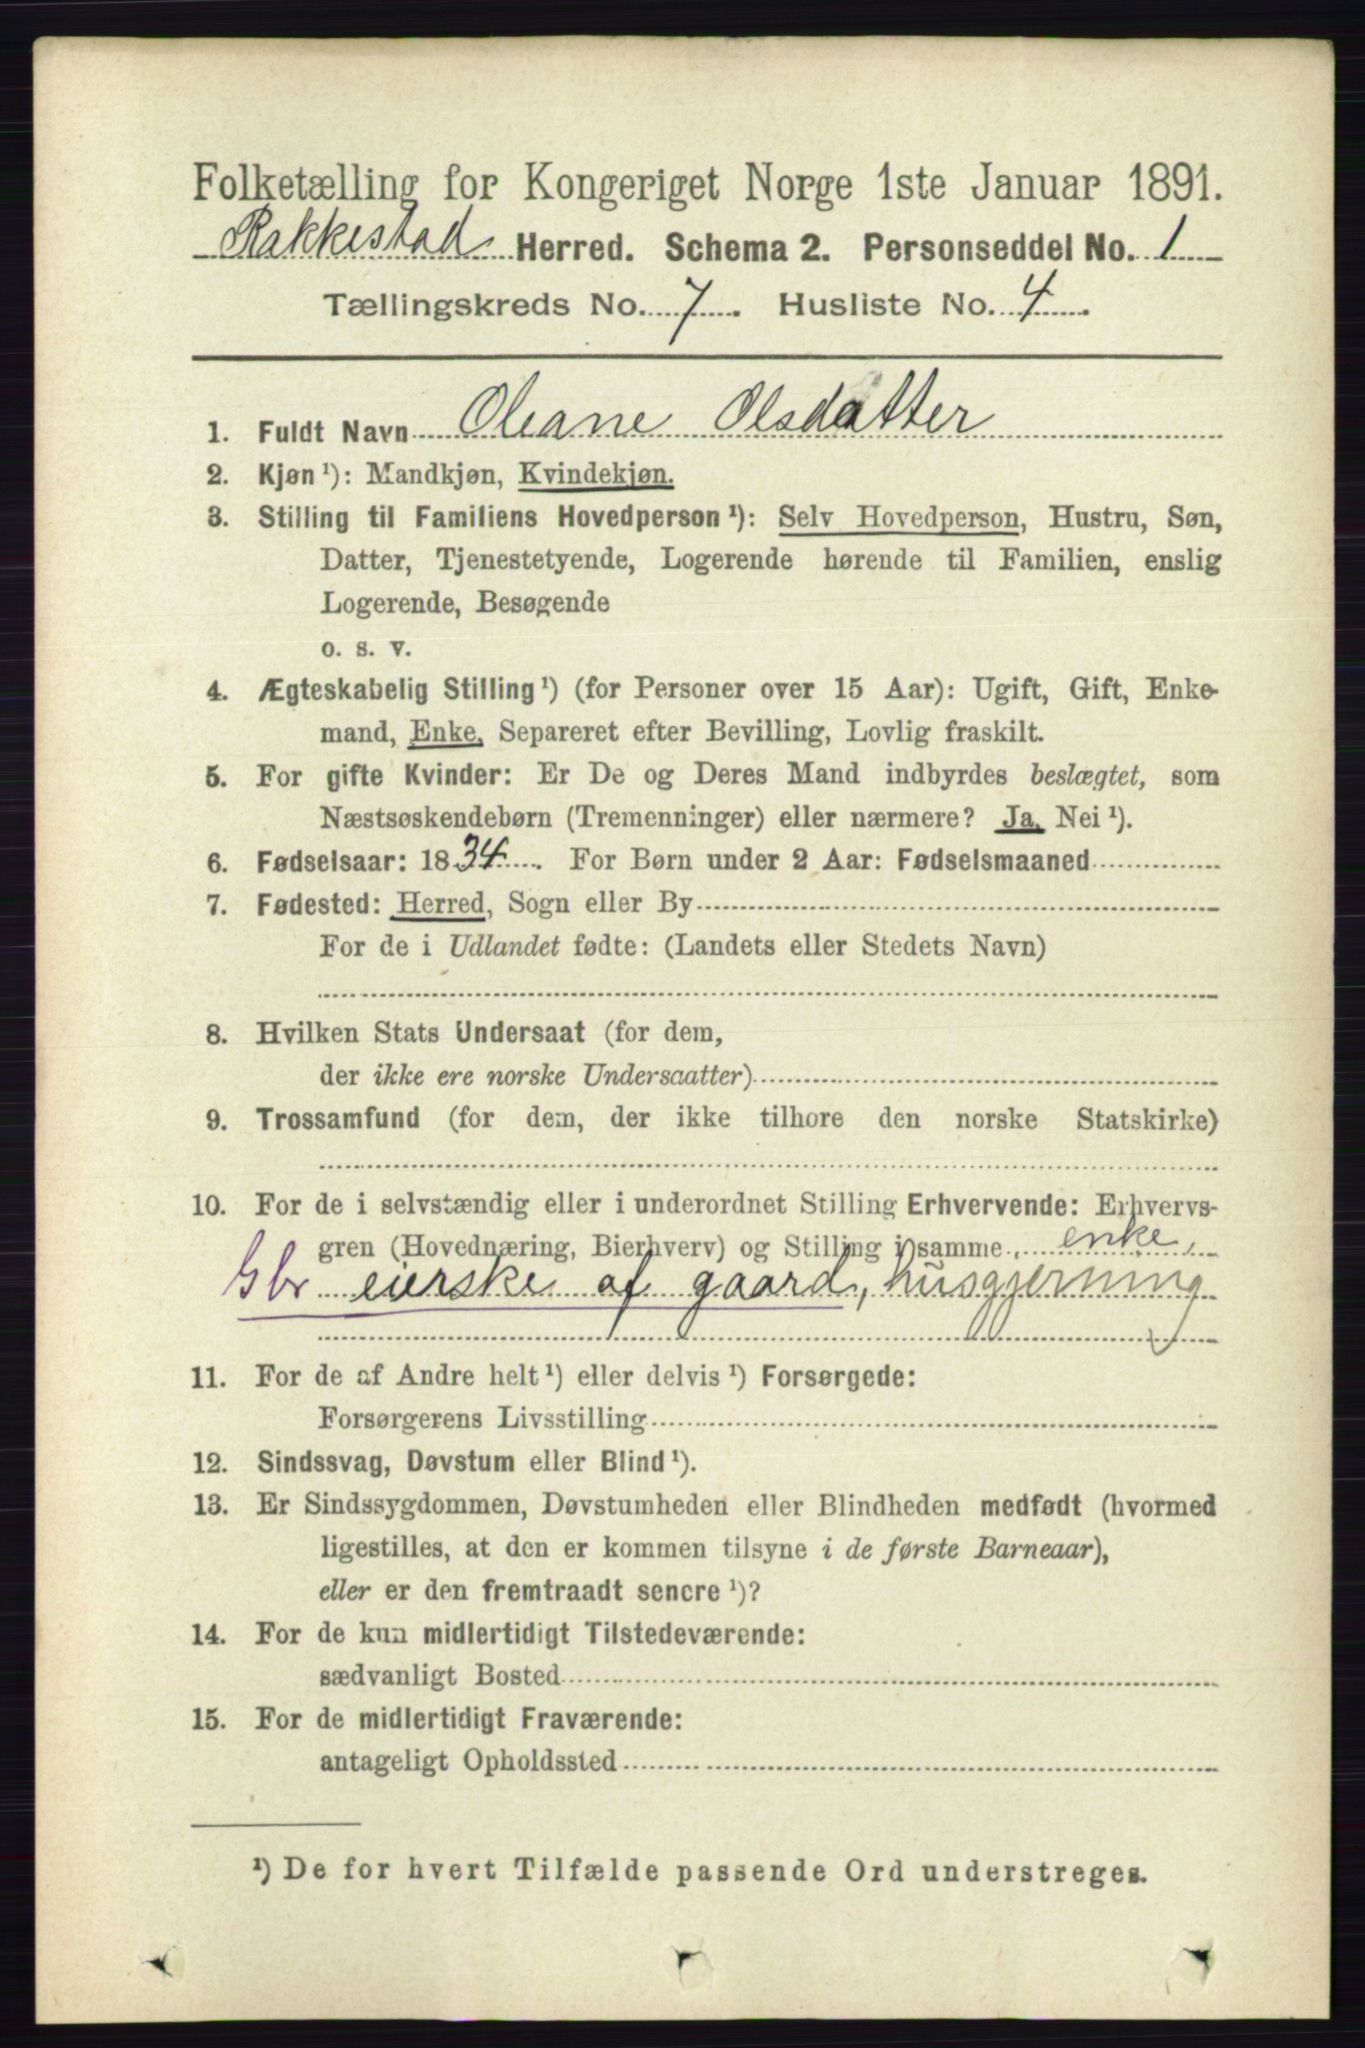 Folketælling for Kongeriget Norge 1ste Januar 1891.
Rakkestad Herred. Schema 2. Personseddel No. 1
Tællingskreds No. 7. Husliste No. 4.
1. Fuldt Navn Oleane Olsdatter
2. Kjøn ¹): Mandkjøn, Kvindekjøn.
3. Stilling til Familiens Hovedperson ¹): Selv Hovedperson, Hustru, Søn,
Datter, Tjenestetyende, Logerende hørende til Familien, enslig
Logerende, Besøgende
o. s. v.
4. Ægteskabelig Stilling ¹) (for Personer over 15 Aar): Ugift, Gift, Enke-
mand, Enke, Separeret efter Bevilling, Lovlig fraskilt.
5. For gifte Kvinder: Er De og Deres Mand indbyrdes beslægtet, som
Næstsøskendebørn (Tremenninger) eller nærmere? Ja, Nei ¹).
6. Fødselsaar: 1834. For Børn under 2 Aar: Fødselsmaaned
7. Fødested: Herred, Sogn eller By
For de i Udlandet fødte: (Landets eller Stedets Navn)
8. Hvilken Stats Undersaat (for dem,
der ikke ere norske Undersaatter)
9. Trossamfund (for dem, der ikke tilhøre den norske Statskirke)
10. For de i selvstændig eller i underordnet Stilling Erhvervende: Erhvervs-
gren (Hovednæring, Bierhverv) og Stilling i samme enke,
Gbr eierske af gaard, husgjerning
11. For de af Andre helt ¹) eller delvis ¹) Forsørgede:
Forsørgerens Livsstilling
12. Sindssvag, Døvstum eller Blind ¹).
13. Er Sindssygdommen, Døvstumheden eller Blindheden medfødt (hvormed
ligestilles, at den er kommen tilsyne i de første Barneaar),
eller er den fremtraadt senere ¹)?
14. For de kun midlertidigt Tilstedeværende:
sædvanligt Bosted
15. For de midlertidigt Fraværende:
antageligt Opholdssted
¹) De for hvert Tilfælde passende Ord understreges.